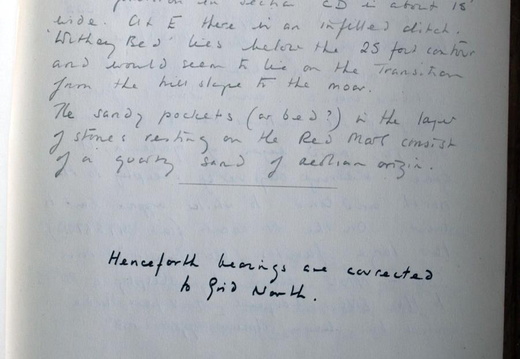 position in section CD is about 15'
wide. At E there is an infilled ditch.
'Withey Bed' lies below the 25 foot contour
and would seem to lie on the Transition
from the hill slope to the moor.
The sandy pockets (or bed?) in the layer
of stones resting on the Red Marl consist
of a quartz sand of aeolian origin.
Henceforth bearings are corrected
to Grid North.